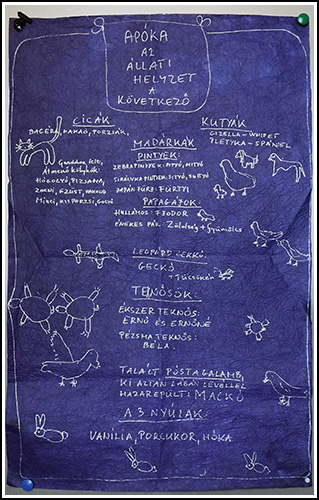 APÓKA
AZ
ÁLLATI
HELYZET
A
KÖVETKEZŐ
CICÁK
BAGERA, KAKAÓ, PORZSÁK,
Gazdára lelt,
HÓGOLYÓ, PIZSAMA,
ZOKNI, EZÜST,
MINCI, KISPORZSI,
KUTYÁK
GIZELLA - WHIPET
PLETYKA - SPÁNIEL
MADÁRKÁK
PINTYEK:
ZEBRAPINTYEK: PITTYŐ, MITTYŐ
JAPÁN FÜRJ: FÜRTYI
PAPAGÁJOK:
HULLÁMOS: FJODOR
ÉNEKES PÁR: Zöldség + Gyümölcs
LEOPÁRD GEKKÓ:
GECKÓ
+ TÜCSKÖK
TEKNŐSÖK:
ÉKSZER TEKNŐS:
ERNŐ ÉS ERNŐNÉ
PÉZSMA TEKNŐS:
BÉLA
TALÁLT POSTAGALAMB,
KI ALTÁN LÁBÁN LEVÉLLEL
HAZAREPÜLT: MACKÓ
A 3 NYULAK:
VANÍLIA, PORCUKOR, MÓKA